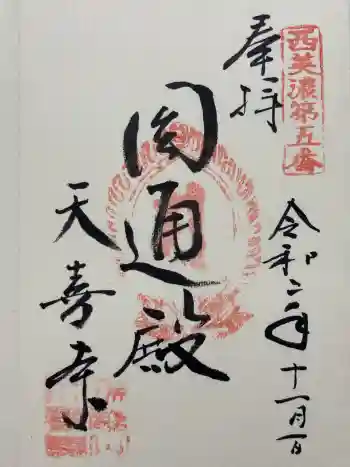 西美濃第五番
奉拝
令和二年十一月一日
円通殿
天喜寺